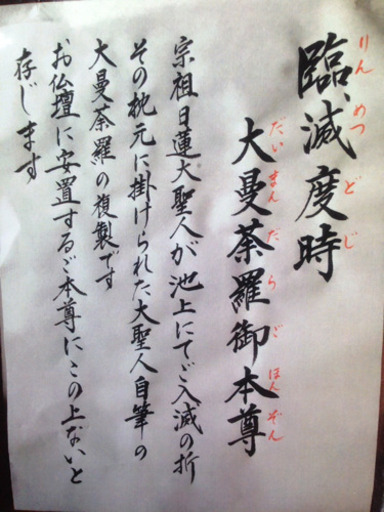 臨滅度時
りんめつどじ
大曼荼羅御本尊
だいまんだらごほんぞん
宗祖日蓮大聖人が池上にてご入滅の折
その枕元に掛けられた大聖人自筆の
大曼荼羅の複製です
お仏壇に安置するご本尊にこの上ないと
存じます